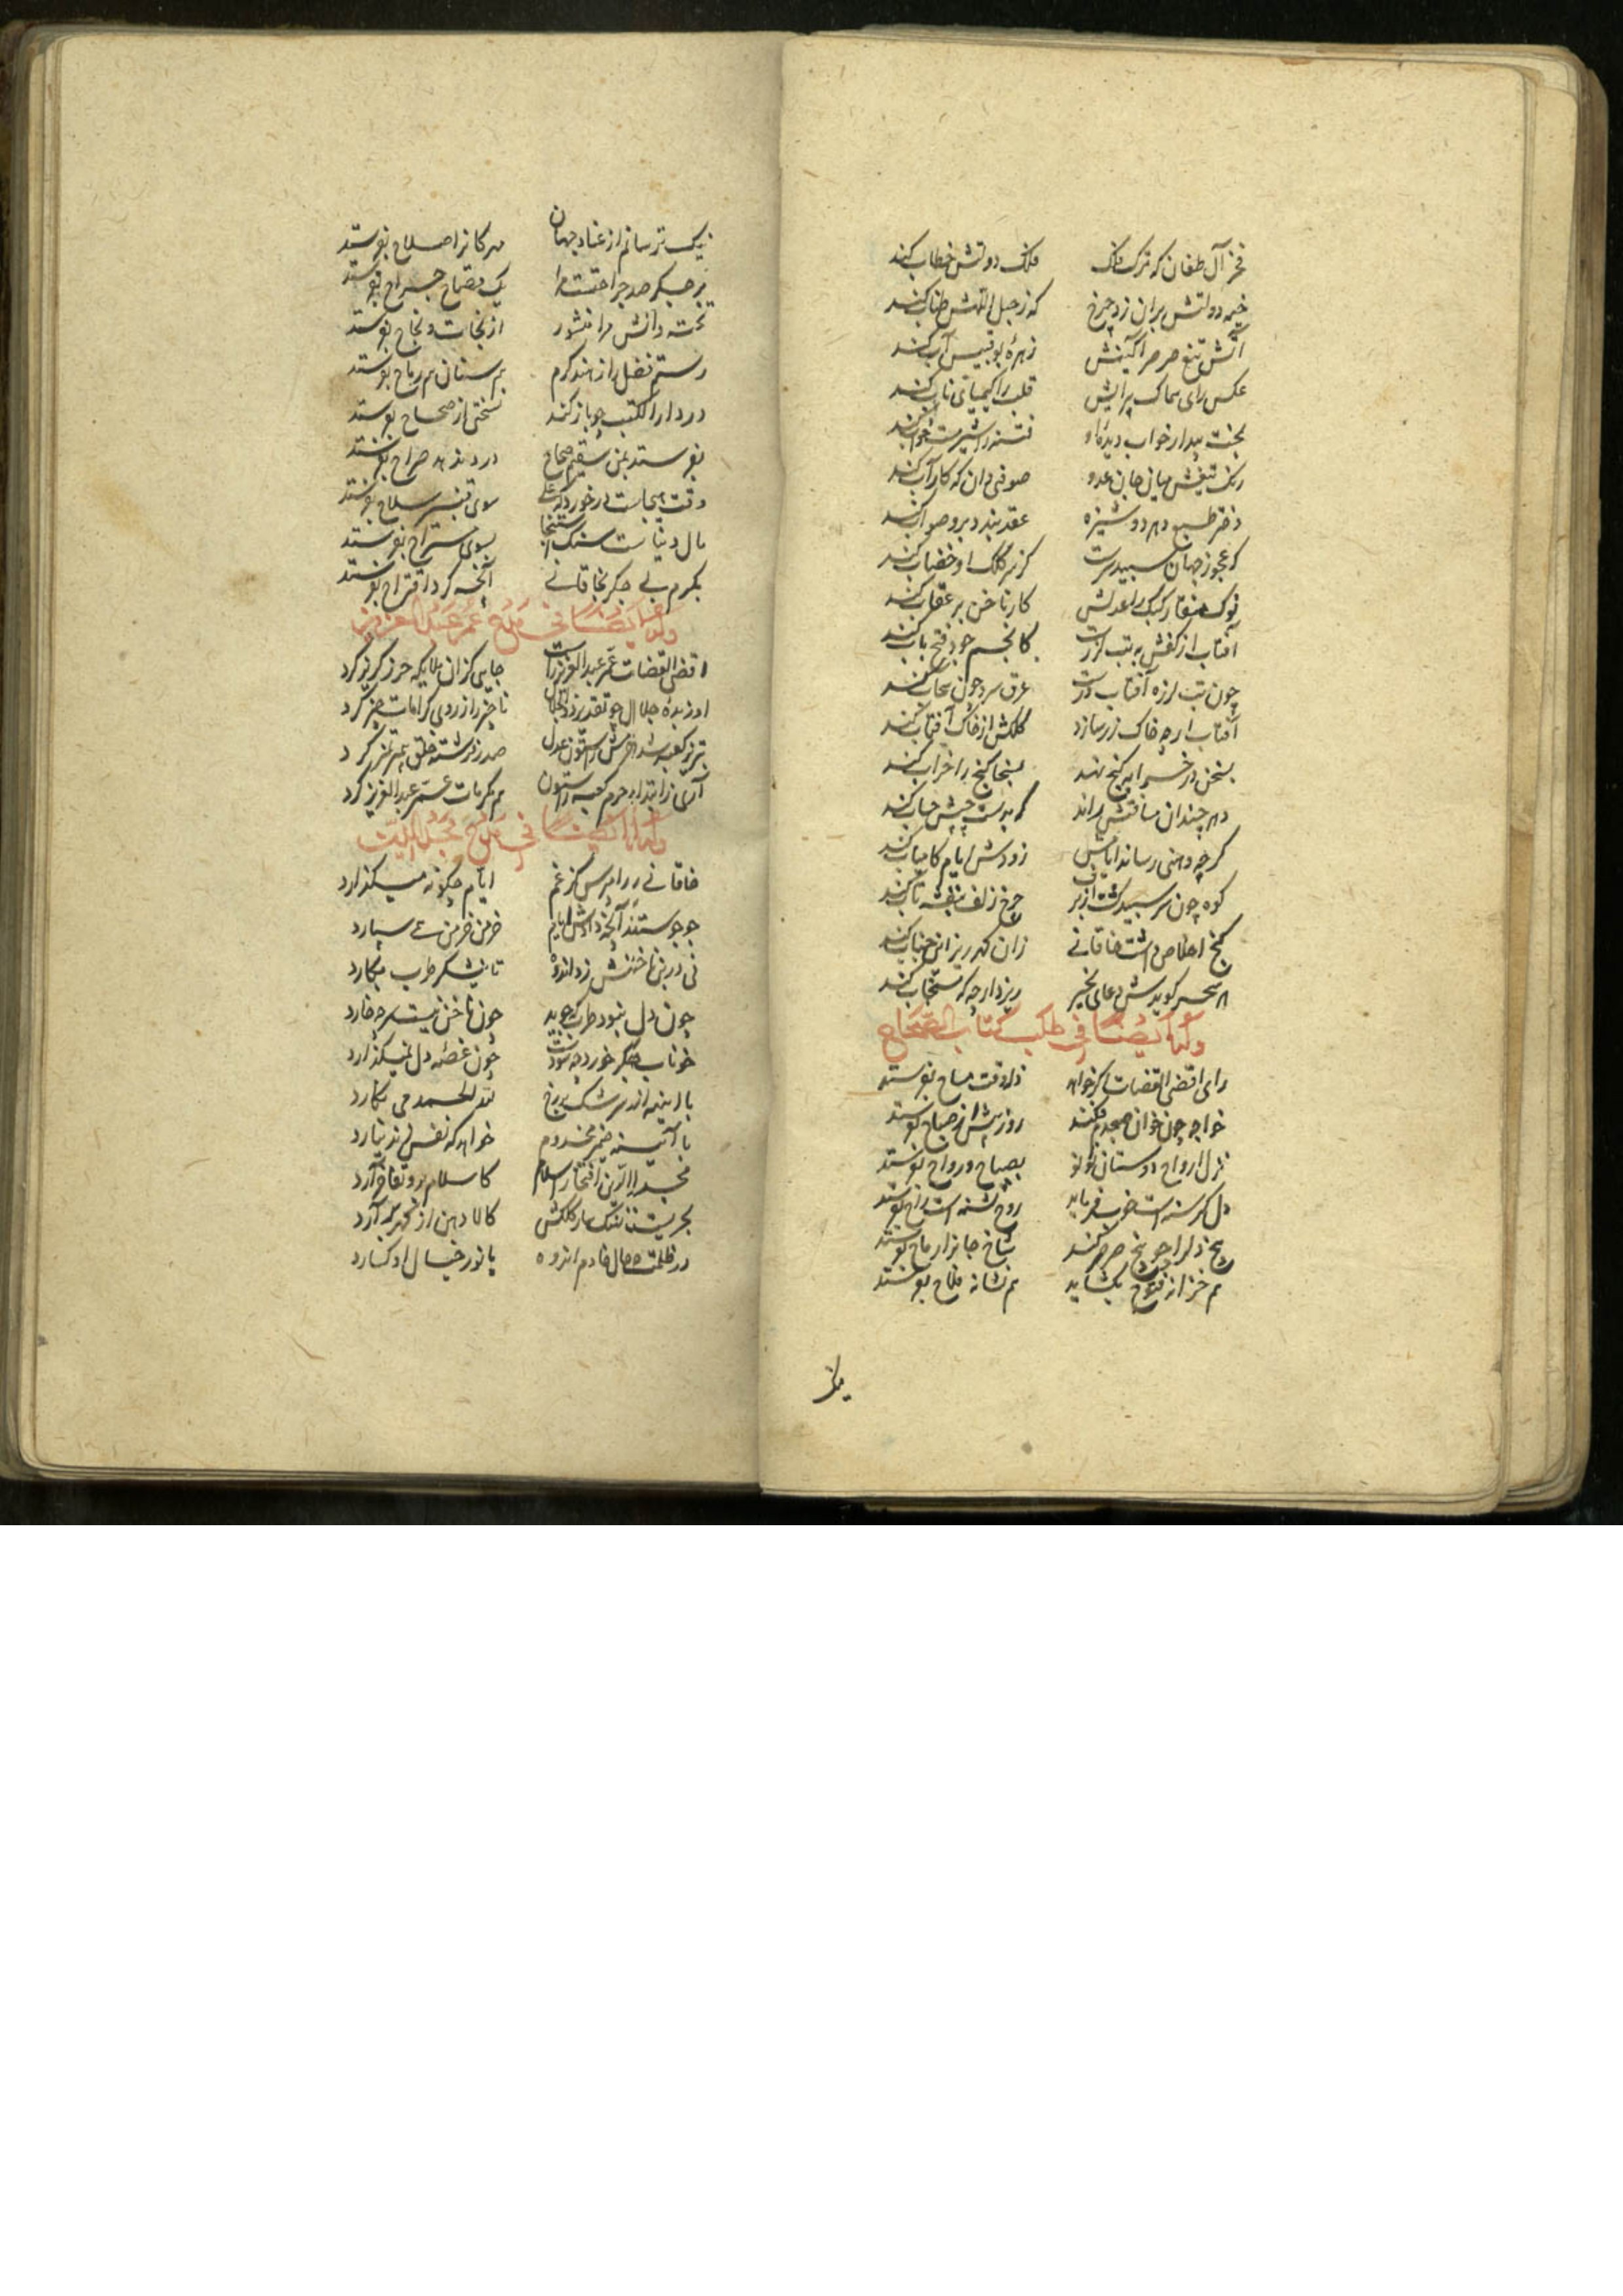 فخر آل طغان که ترک فلک فلک دولتش خطاب کند
خیمه دولتش بران زد چرخ که ز حبل اللهش طناب کند
آتش تیغ صرصر آکینش زهره بوقبیس آب کند
عکس رای سماک پرایش قلب را کیمیای ناب کند
بخت بیدار خواب دیده او فتنه را شیرمست خواب کند
رنک تیغش میان جان عدو صوفی دان که کار آب کند
دختر طبع دهر دوشیزه عقد بندد برو صواب کند
که عجوز جهان سپید سرت کز سر کلک او خضاب کند
نوک منقار کبک را عدلش کارناخن بر عقاب کند
آفتاب از کفش به تب لرزت کانجم جود فتح باب کند
چون تب لرزه آفتاب درت عرق سرد چون سحاب کند
آفتاب ارچه خاک زر سازد کلکش از خاک آفتاب کند
بسخن در خرابه کنج نهد بسخا کنج را خراب کند
دهر چندان منافتش راند که بدست چپش حساب کند
کرچه وهنی رساند ایامش زودش ایام کامیاب کند
کوه چون سر سپید کشت از برف چرخ زلف بنفشه تاب کند
کنج اخلاص داشت خاقانی زان کهر ریز این جناب کند
هر سحر کویدش دعای بخیر ریزد ارچه که مستجاب کند
وله ایضا فی طلب کتاب الصحاح
رای اقضی القضات اگر خواهد
خواجه چون خوان صبحدم فکند روزیش از صباح بفرستد
نزل ارواح دوستان نو نو بصباح و رواح بفرستد
دل کرسنه است خوب فرماید روح تشنه است راح بفرستد
بیخ دلرا چو بیخ صرصر کند شاخ جانرا ریاح بفرستد
هم خزانه فتوح بکشاید هم نشانه فلاح بفرستد
نیک ترسانم از عناد جهان مهرکانرا صلاح بفرستد
بر جکر صد جراحتست مرا یک قصاح جراح بفرستد
تخته دانش مرا منشور از نجات و نجاح بفرستد
رستم فضل را ز هند کرم هم سنان هم رماح بفرستد
در دارالکتب چو باز کند نسختی از صحاح بفرستد
بفرستد بمن سقیم صحاح
وقت هیجاست در خورد که علی سوی قنبر سلاح بفرستد
مال دنیاست سنک استنجا بسوی مستراح بفرستد
بکرم بی جکر بخاقانی آنچه کرد اقتراح بفرستد
وله ایضا فی مدح عمر عبدالعزیز
اقضی القضات عمر عبدالعزیز راست جایی کزان ملایکه حرز کریز کرد
او زبده جلال چو تقدیر ذوالجلال ناچیز را ز روی کرامات چیز کرد
آری ز ابتدا به حرم کعبه را ستون هم مکرمات عمر عبدالعزیز کرد
وله ایضا فی مدح مجدالدین
خاقانی را مپرس کز غم ایام چکونه میکذارد
جوجو ستند آنچه دادش ایام خرمن خرمن همی سپارد
نی در بن ناخنش زد اندوه تا نیشکر طرب بکارد
چون دل نبود طرب که جوید چون ناخن نیست سر چه خارد
خوناب جکر خورد چه سودست چون غصه دل نمیکذارد
با اینهمه از سرشک بر رخ الحمد همی نکارد
با آینه ضمیر مخدوم خواهد که نفس زند نیارد
مجدالدین افتخار اسلام کاسلام برو تفاخر آرد
بحریست نهنک سار کلکش کالا دهن از کهر برآرد
در ظلمت حال خادم اندوه با نور خیال او کسارد
نیک